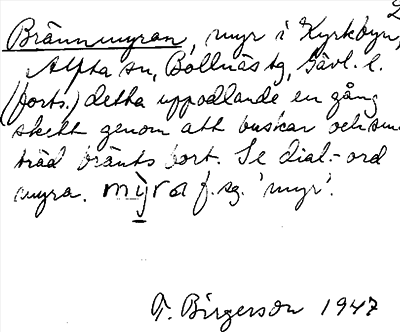 Brännmyran, myr i Kyrkbyn,
Alfta sn, Bollnäs tg, Gävl. l.
(forts.) detta uppodlande en gång
skett genom att buskar och sm
träd bränts bort. Se dial.-ord
myra. myra f. sg. 'myr'.
T. Birgerson 1947